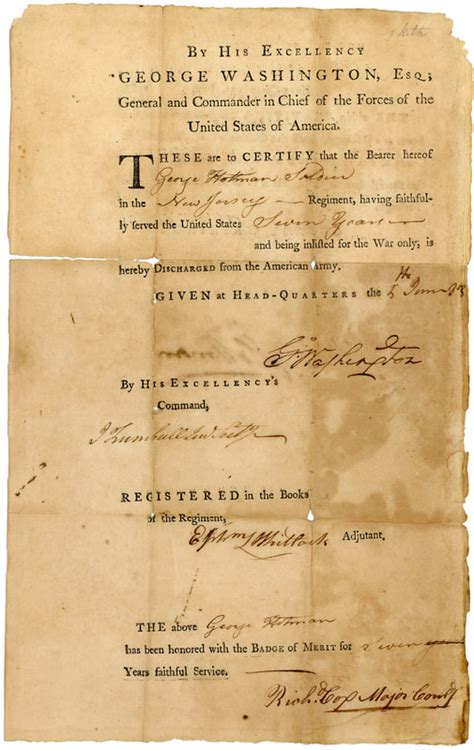 By His Excellency
GEORGE WASHINGTON, Esq;
General and Commander in Chief of the Forces of the
United States of America.
THESE are to CERTIFY that the Bearer hereof
George Hotman Soldier
in the New Jersey Regiment, having faithful-
ly served the United States Seven Years
and being inlisted for the War only, is
hereby Discharged from the American Army.
GIVEN at Head-Quarters the 5th June
Go Washington
By His Excellency's
Command,
J Trumbull Jun Secy
REGISTERED in the Books
of the Regiment,
Ephm Whitlock Adjutant.
THE above George Hotman
has been honored with the Badge of Merit for Seven
Years faithful Service.
Richd Cox Major